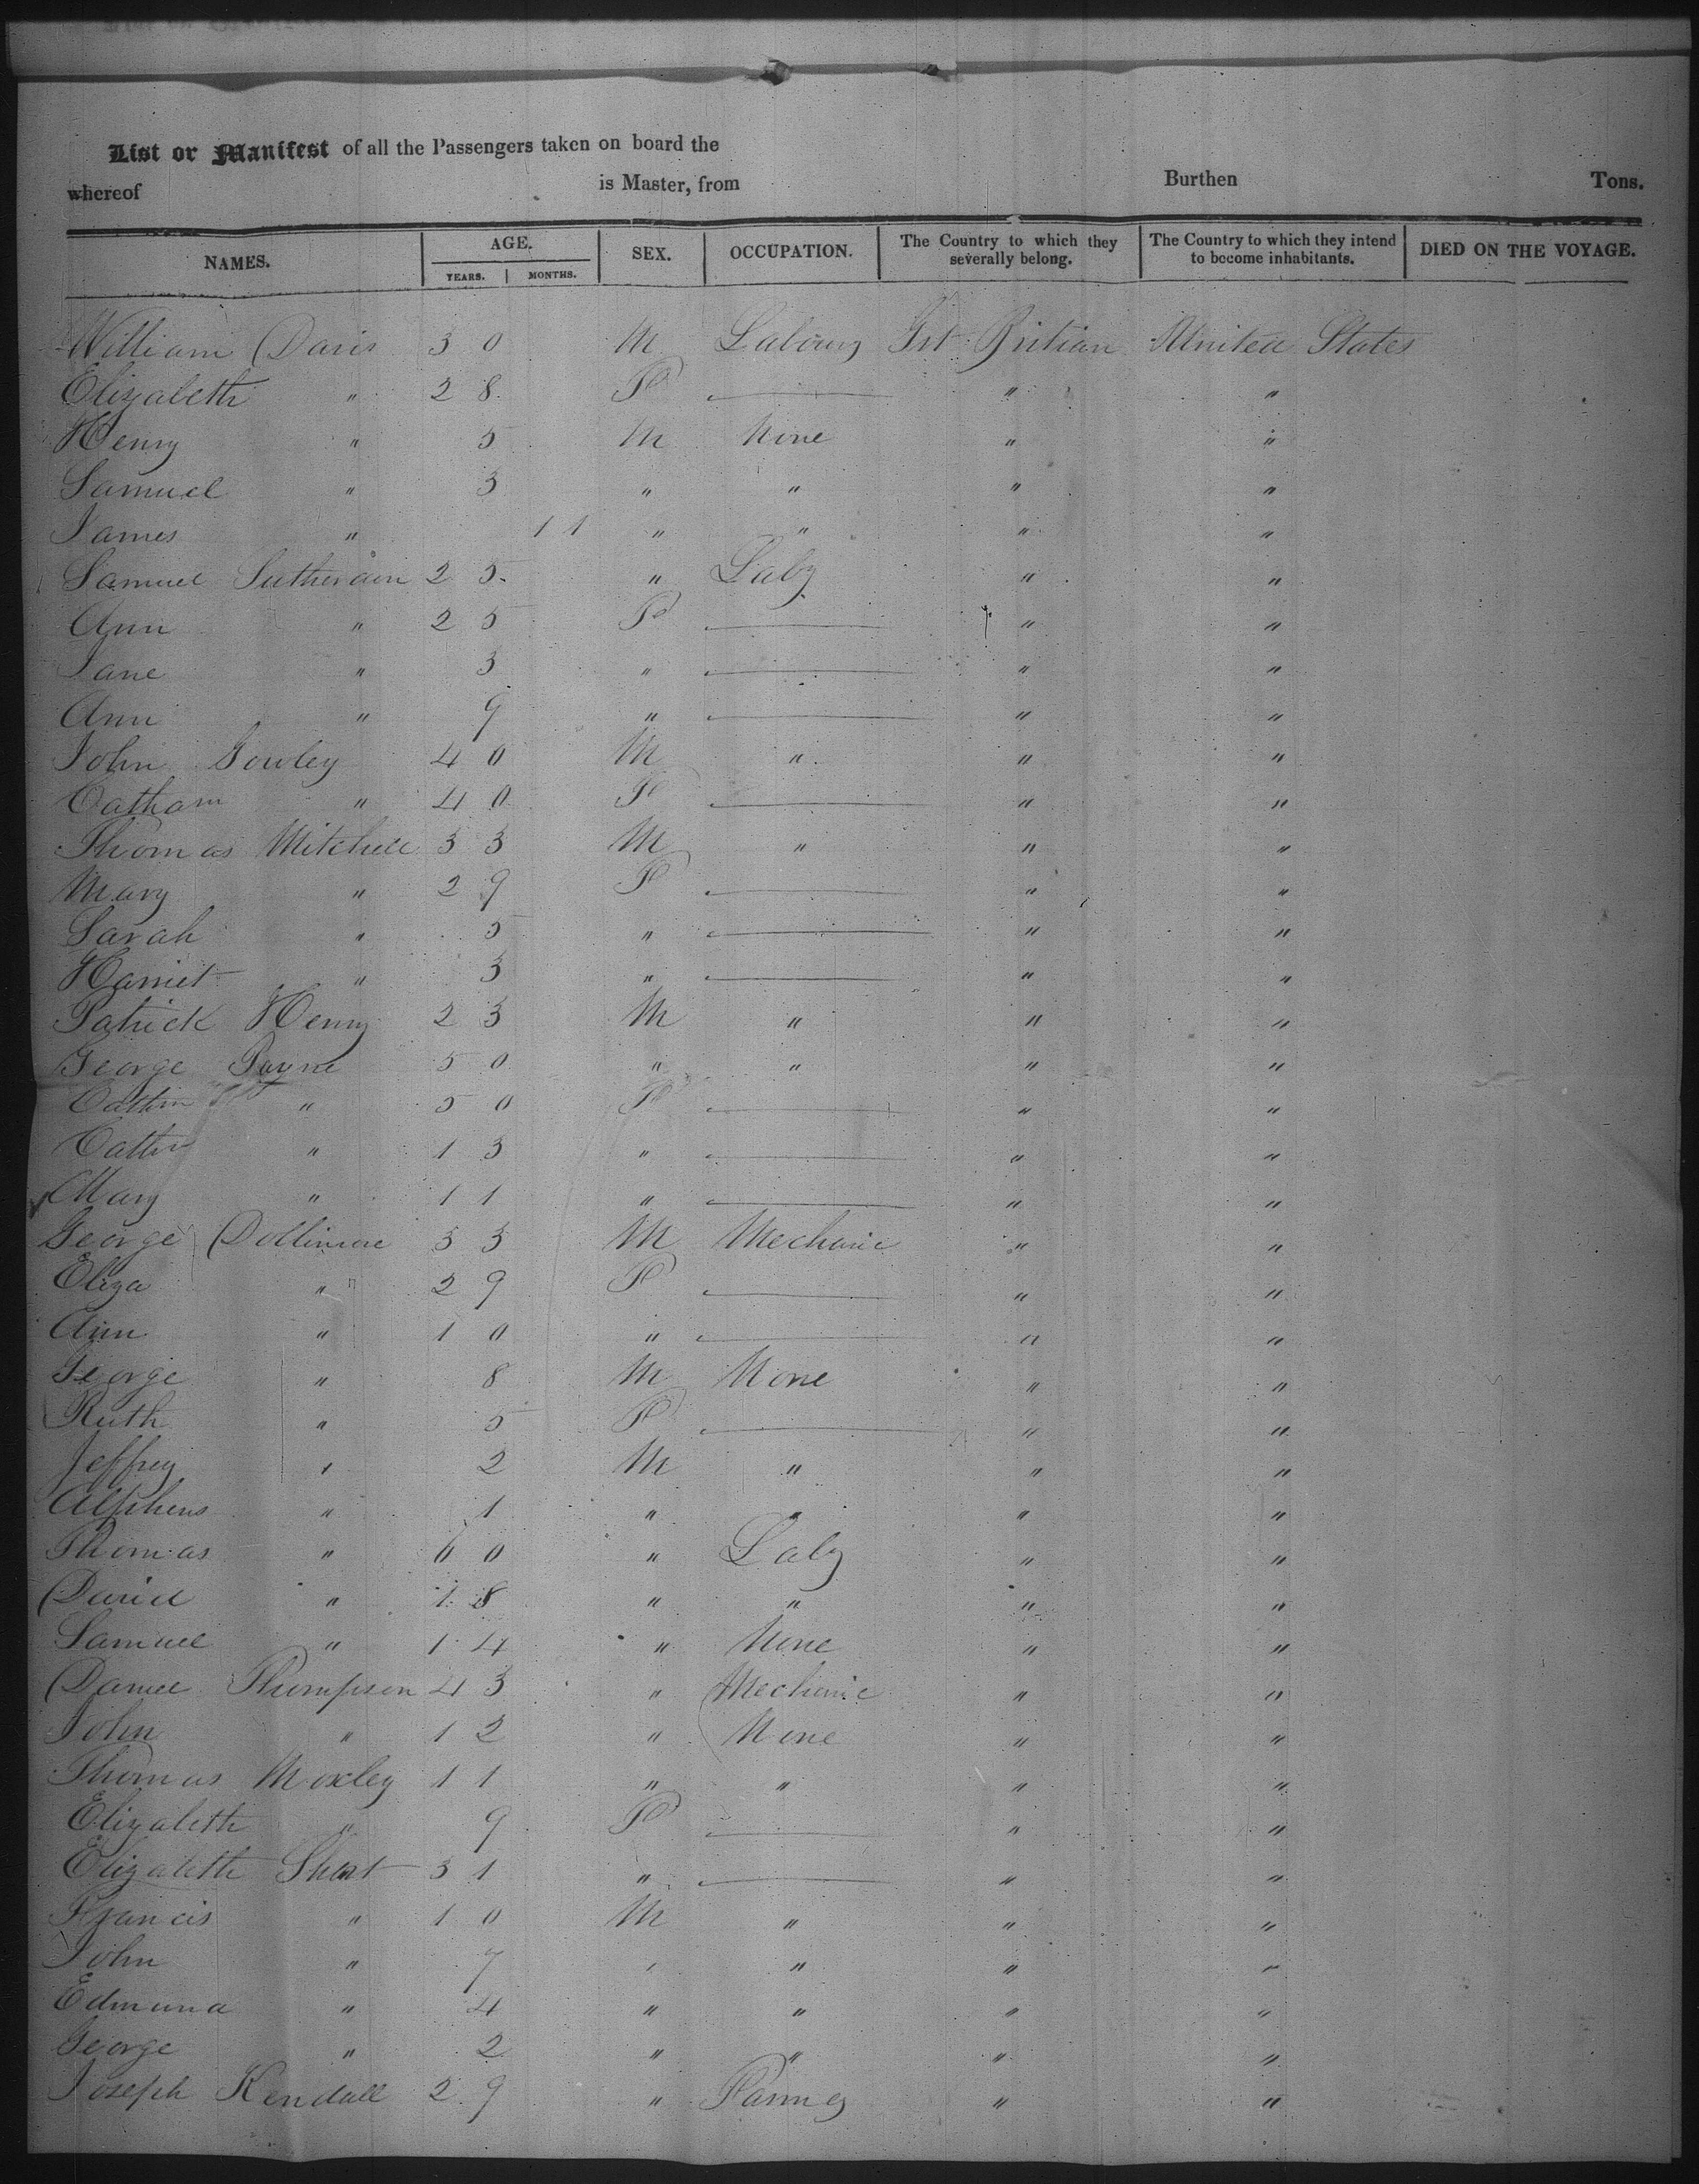 List or Manifest of all the Passengers taken on board the
whereof is Master, from Burthen Tons.
NAMES. AGE. YEARS. MONTHS. SEX. OCCUPATION. The Country to which they severally belong. The Country to which they intend to become inhabitants. DIED ON THE VOYAGE.
William Davis 30 M Labourg Grt Britian United States
Elizabeth " 28 F " "
Henry " 5 M None " "
Samuel " 3 " " " "
James " 11 " " " "
Samuel 25 " Labg " "
Ann " 25 F " "
Jane " 3 " " "
Ann " 9 " " "
John Gowley 40 M " " "
" 40 F " "
Thomas Mitchell 33 M " " "
Mary " 29 F " "
Sarah " 5 " " "
Harriet " 3 " " "
Patrick Henry 23 M " " "
George Payne 50 " " " "
" 50 F " "
" 13 " " "
Mary " 11 " " "
George Dollimore 33 M Mechanic " "
Eliza " 29 F " "
Ann " 10 " " "
George " 8 M None " "
Ruth " 5 F " "
Jeffrey " 2 M " " "
Alpheus " 1 " " " "
Thomas " 60 " Labg " "
David " 18 " " " "
Samuel " 14 " None " "
Daniel Thompson 43 " Mechanic " "
John " 12 " None " "
Thomas Moxley 11 " " " "
Elizabeth " 9 F " "
Elizabeth Short 31 " " "
Francis " 10 M " " "
John " 7 " " " "
Edmund " 4 " " " "
George " 2 " " " "
Joseph Kendall 29 " Farmg " "